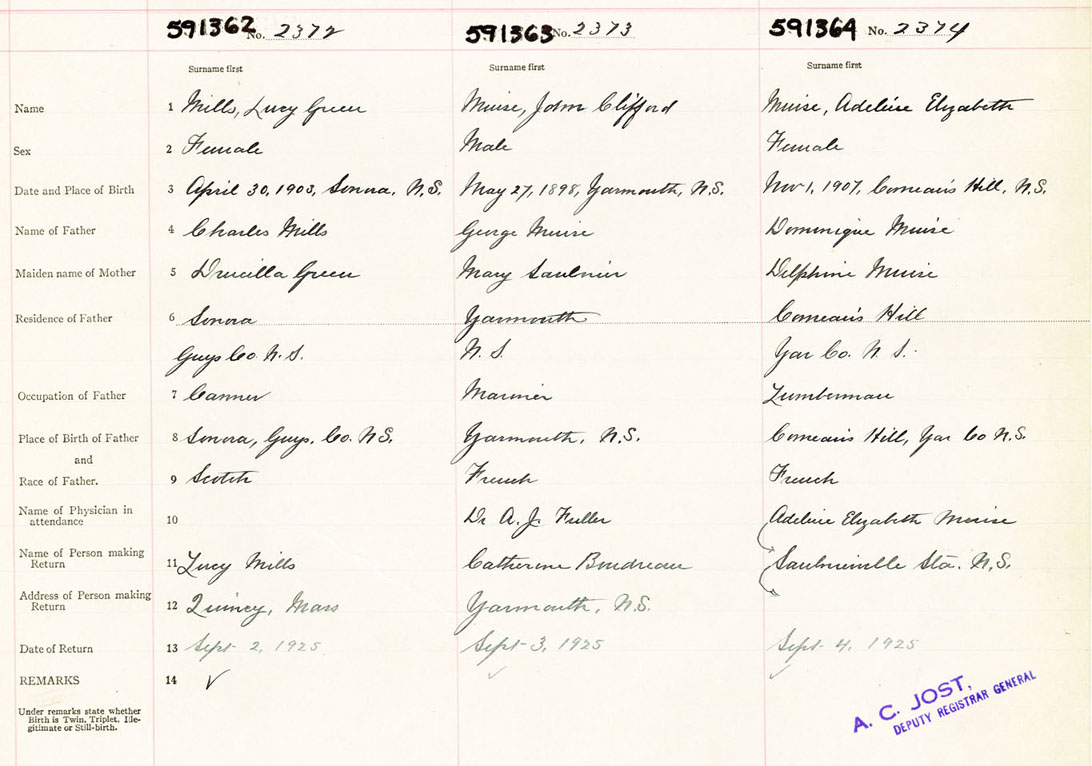 591362 No. 2372 591363 No. 2373 591364 No. 2374
Surname first Surname first Surname first
Name 1 Mills, Lucy Green Muise, John Clifford Muise, Adeline Elizabeth
Sex 2 Female Male Female
Date and Place of Birth 3 April 30, 1903, Sonora, N.S. May 27, 1898, Yarmouth, N.S. Nov 1, 1907, Comeau's Hill, N.S.
Name of Father 4 Charles Mills George Muise Dominique Muise
Maiden name of Mother 5 Drucilla Green Mary Saulnier Delphine Muise
Residence of Father 6 Sonora Yarmouth Comeau's Hill
Guys Co. N.S. N.S. Yar Co. N.S.
Occupation of Father 7 Canner Mariner Lumberman
Place of Birth of Father 8 Sonora, Guys. Co. N.S. Yarmouth, N.S. Comeau's Hill, Yar Co N.S.
and
Race of Father. 9 Scotch French French
Name of Physician in attendance 10 Dr A. J. Fuller Adeline Elizabeth Muise
Name of Person making Return 11 Lucy Mills Catherine Boudreau Saulnierville Sta. N.S.
Address of Person making Return 12 Quincy, Mass Yarmouth, N.S.
Date of Return 13 Sept 2, 1925 Sept 3, 1925 Sept 4, 1925
REMARKS 14
Under remarks state whether
Birth is Twin, Triplet, Ille-
gitimate or Still-birth.
A. C. JOST,
DEPUTY REGISTRAR GENERAL